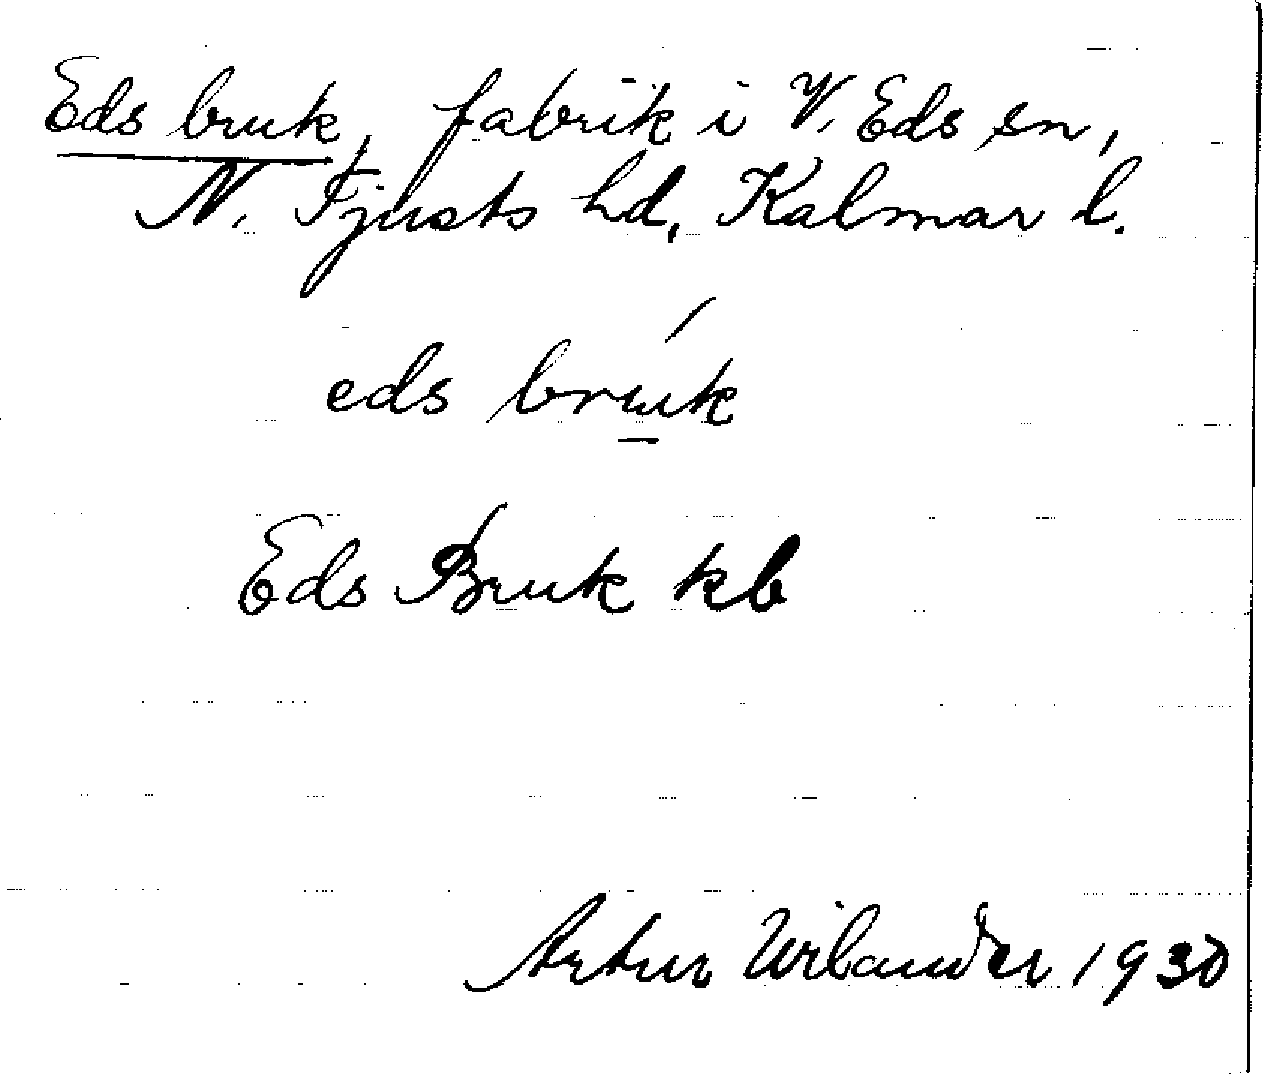 Eds bruk, fabrik i V. Eds sn,
N. Tjusts hd, Kalmar l.
eds brúk
Eds Bruk kb
Artur Wilander 1930